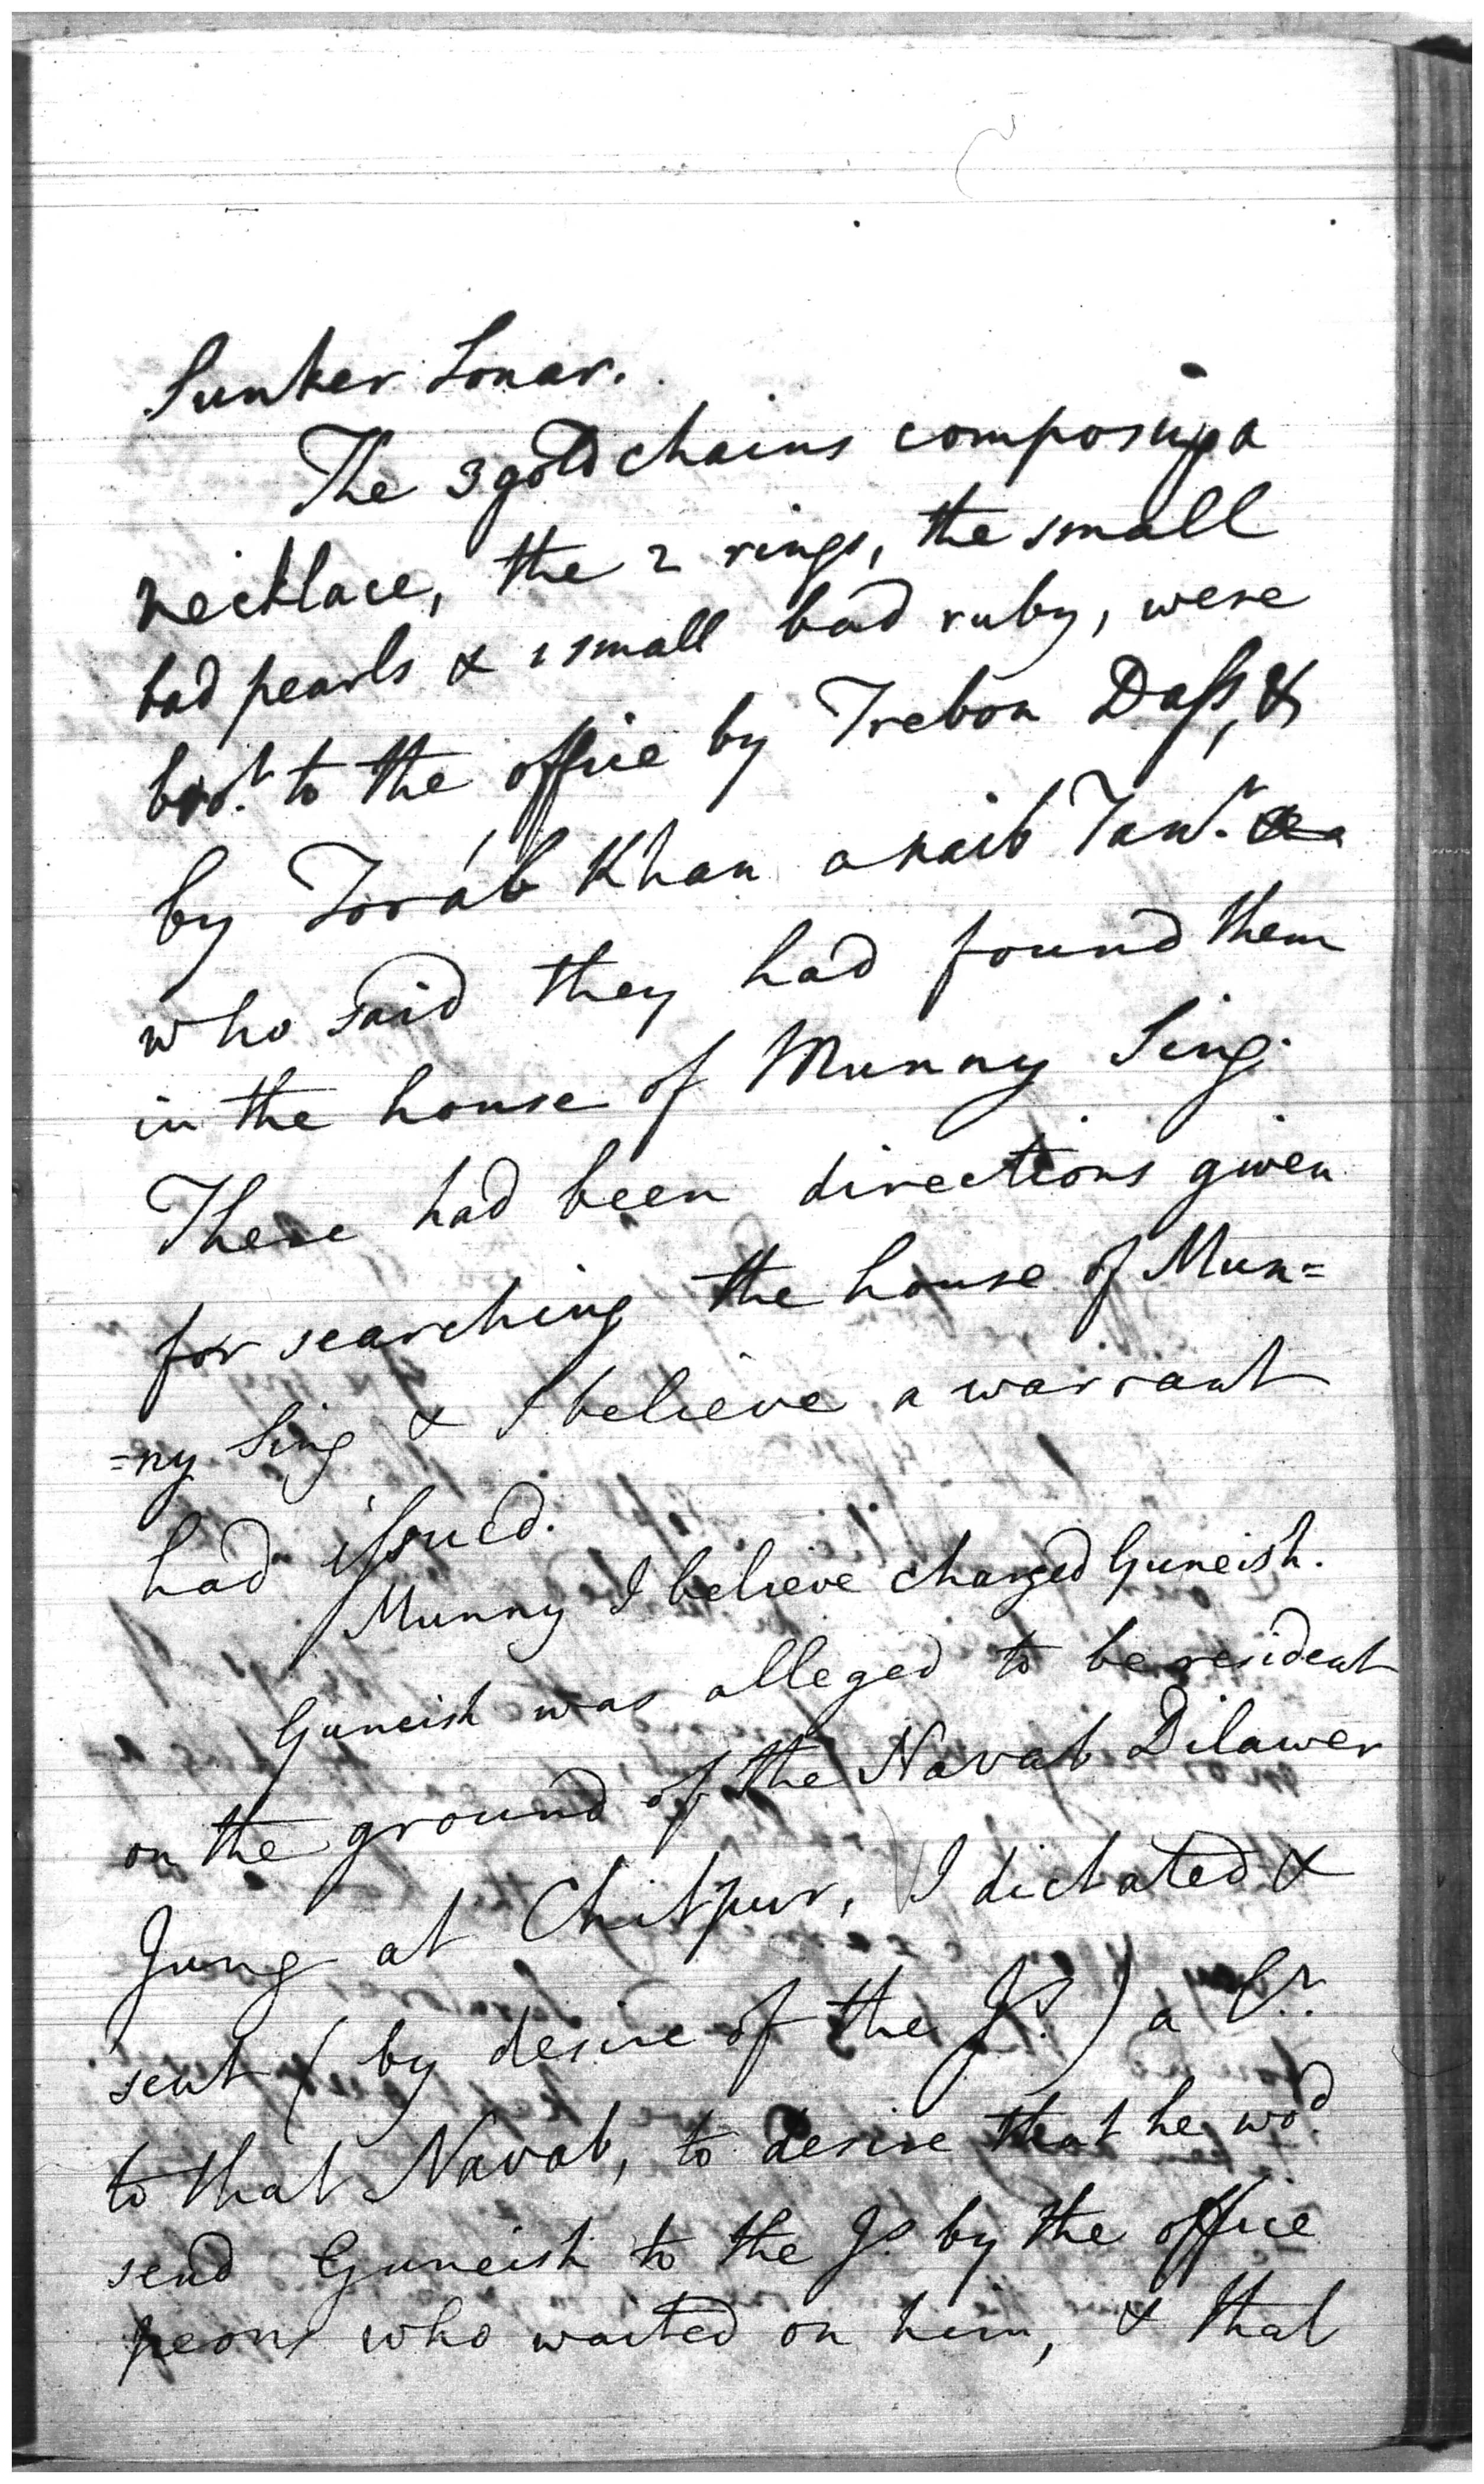 Sunker Sonar.
The 3 gold chains composing a
necklace, the 2 rings, the small
bad pearls & 1 small bad ruby, were
bro.t to the office by Trebon Dass, &
by Toráb Khan a naib Tan.r
who said they had found them
in the house of Munny Sing.
There had been directions given
for searching the house of Mun=
=ny Sing & I believe a warrant
had issued.
Munny I believe charged Guneish.
Guneish was alleged to be resident
on the ground of the Navab Dilawer
Jung at Chitpur, I dictated &
sent (by desire of the Js.) a
to that Navab, to desire that he wod.
send Guneish to the Js. by the office
peons who waited on him, & that